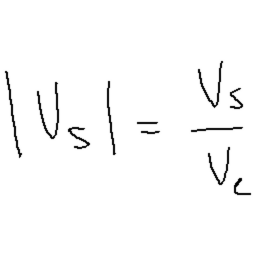 |V_s| = \frac{V_s}{V_c}